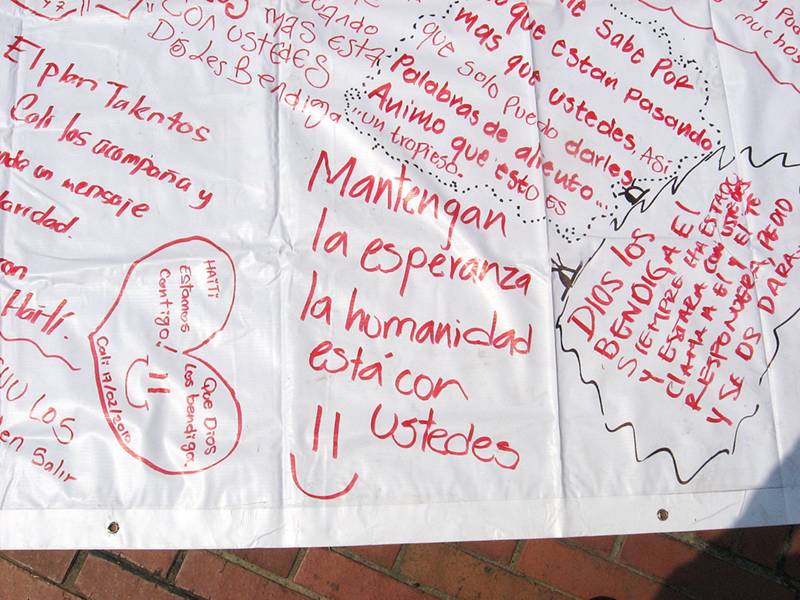 cuando
CON USTEDES
MAS ESTA
Dios Les Bendiga
que solo puedo
Palabras de aliento...
Animo que esto es
...un tropieso.
Me SABE POR
lo que estan pasando
mas que ustedes, Asi
darles
y Pod
muchos
El plan Talentos
Cali los acompaña y
un mensaje
Mantengan
la esperanza
la humanidad
está con
ustedes
HAITI
ESTAMOS
Contigo!
Que Dios
los bendiga.
Cali 17/02/2010
DIOS LOS
BENDIGA EL
SIEMPRE HA ESTADO
Y ESTARA CON USTEDES
CLAMA A EL Y EL TE
RESPONDERA, PEDID
Y SE OS DARA
LOS
Salir